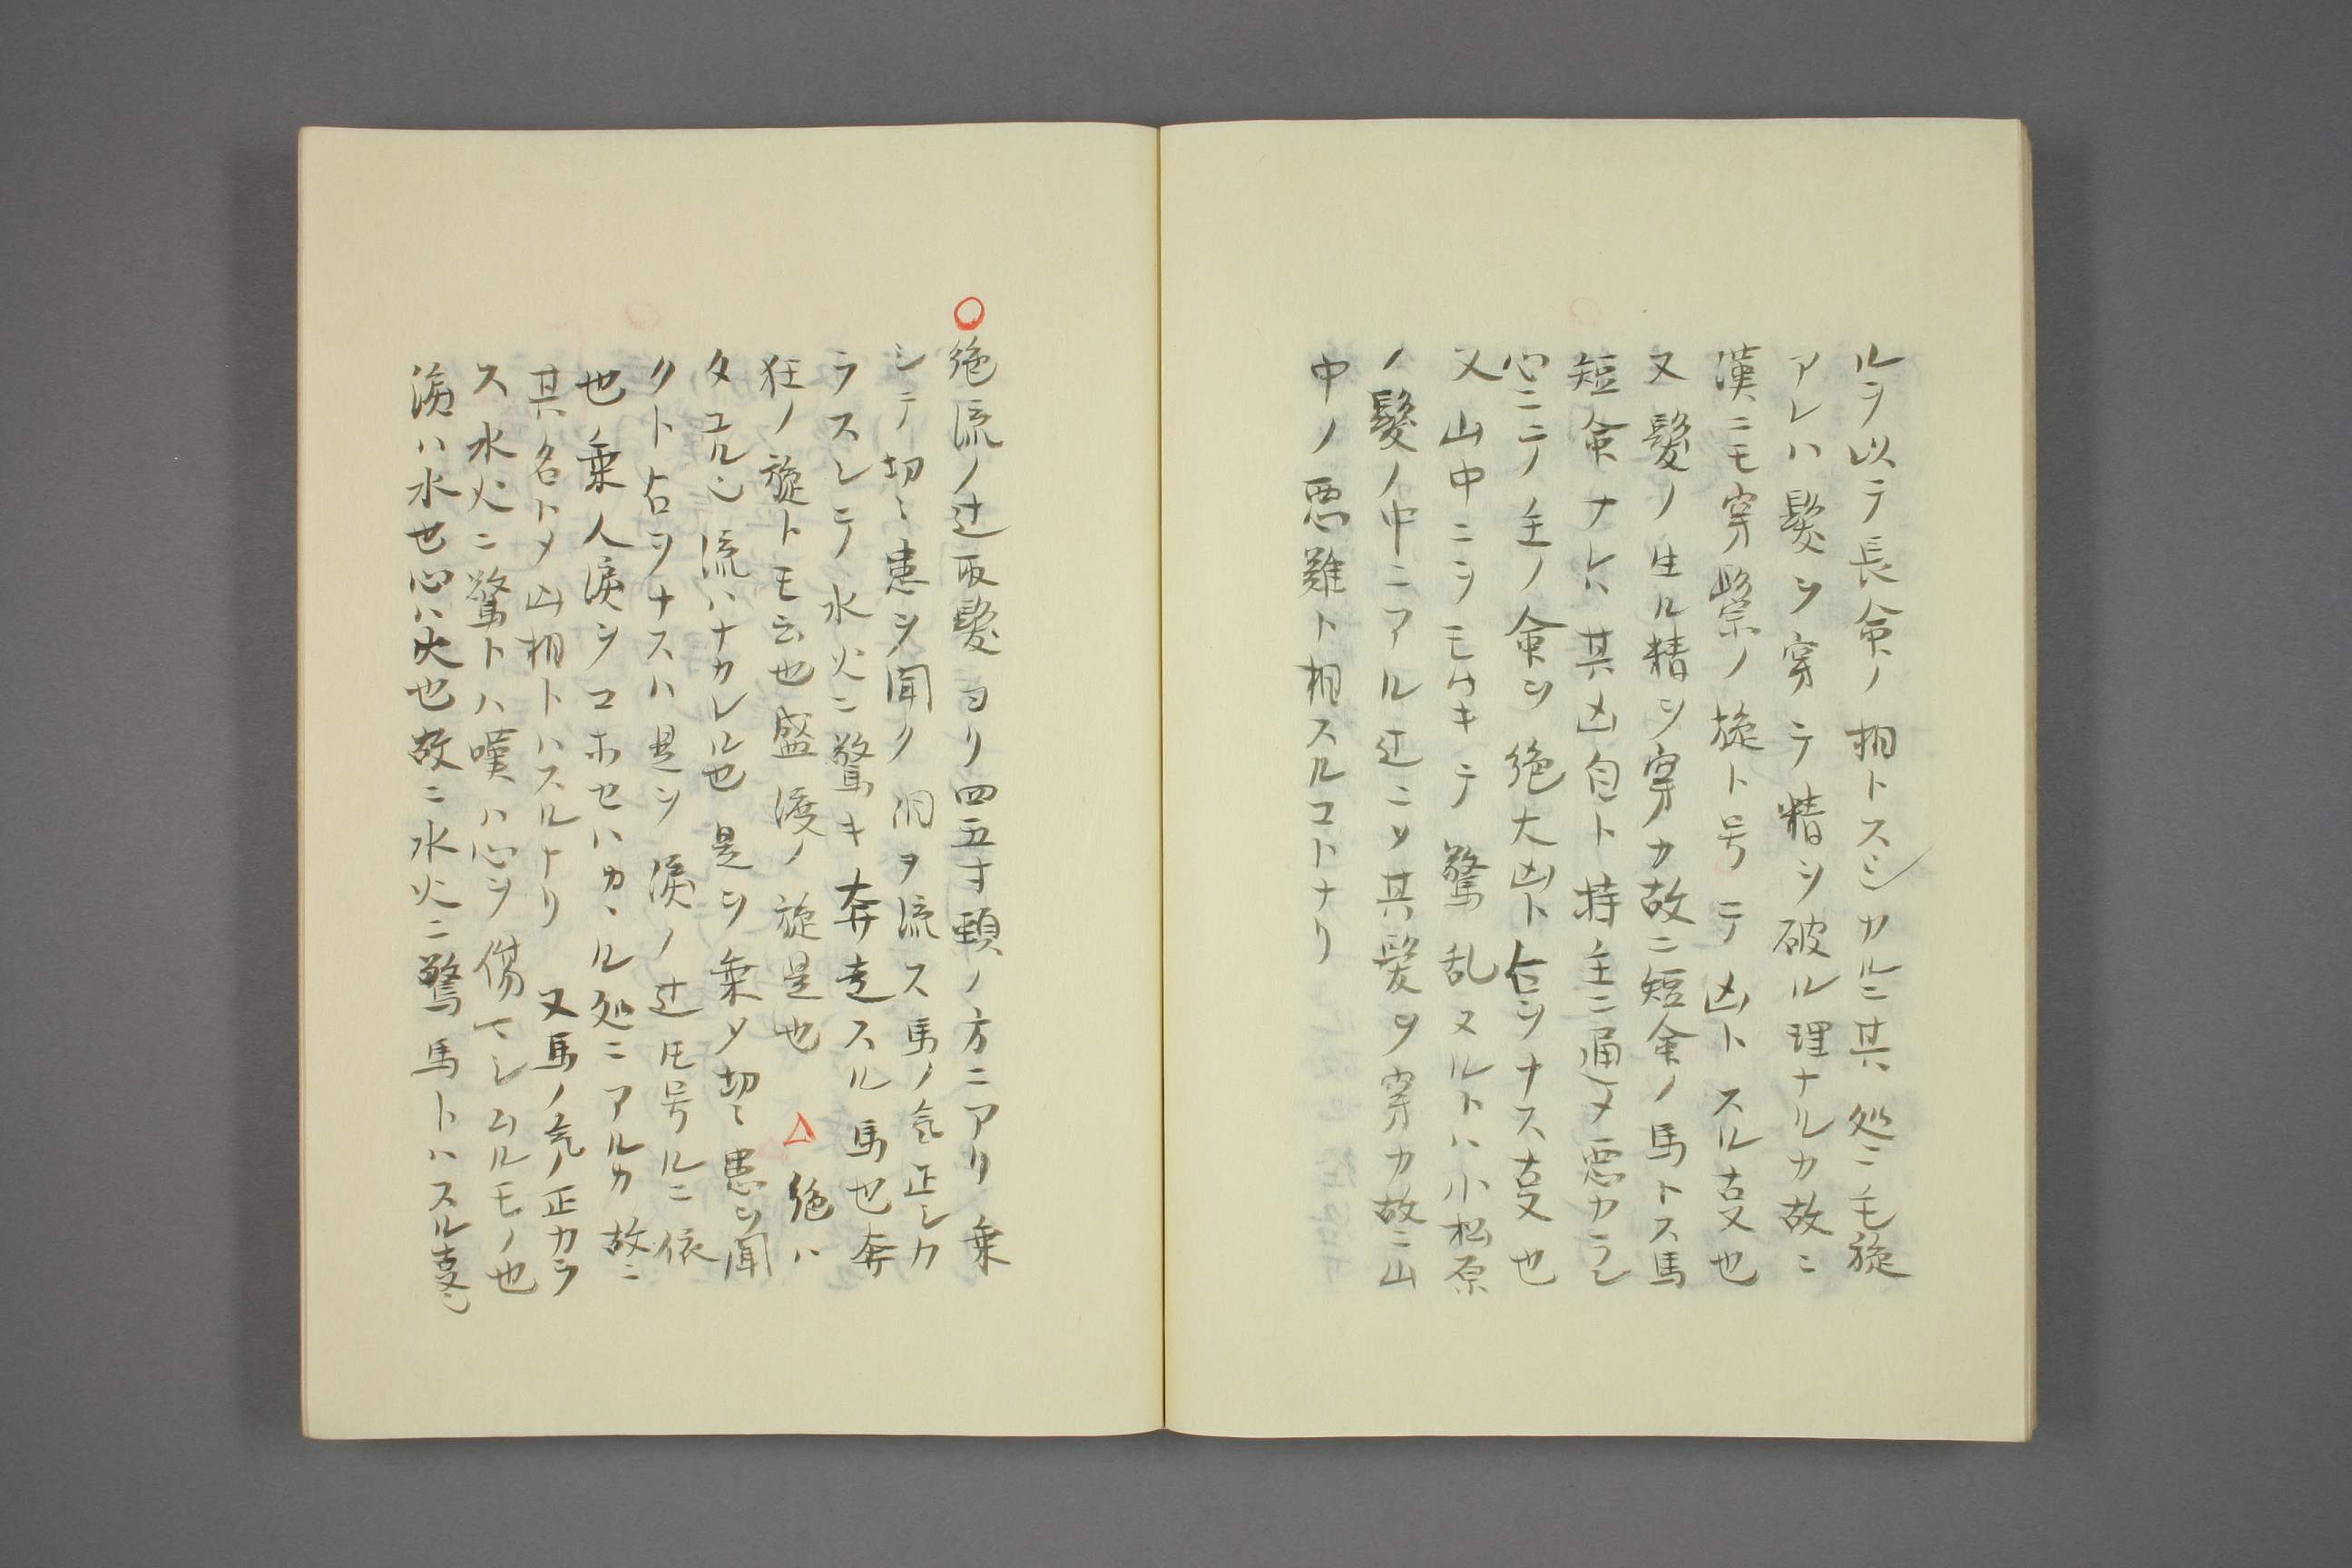 ルヲ以テ長命ノ相トスシカルニ其処ニ毛旋
アレハ髪ヲ穿テ精ヲ破ル理ナルカ故ニ
漢ニモ穿鬃ノ旋ト号テ凶トスル叓也
又髪ノ生ル精ヲ穿カ故ニ短命ノ馬トス馬
短命ナレハ其凶自ト持主ニ通メ悪カラン
心ニテノ主ノ命ヲ絶大凶ト占ヲナス叓也
又山中ニヲモムキテ驚乱スルトハ小松原
ノ髪ノ中ニアル辻ニソ其髪ヲ穿カ故ニ山
中ノ悪難ト相スルコトナリ
○絶流ノ辻取髪ヨリ四五寸頸ノ方ニアリ乗
シテ切々患ヲ聞ク泪ヲ流ス馬ノ気正シカ
ラスシテ水火ニ驚キ奔走スル馬也奔
狂ノ旋トモ云也盛渡ノ旋是也 △絶ハ
タユル心流ハナカレル也是ヲ乗メ切々患ヲ聞
クト占ヲナスハ是ヲ涙ノ辻トモ号ルニ依
也乗人涙ヲコホセハカヽル処ニアルカ故ニ
其名トメ凶相トハスルナリ 又馬ノ気ノ正カラ
ス水火ニ驚トハ嘆ハ心ヲ傷マシムルモノ也
涙ハ水也心ハ火也故ニ水火ニ驚馬トハスル叓也